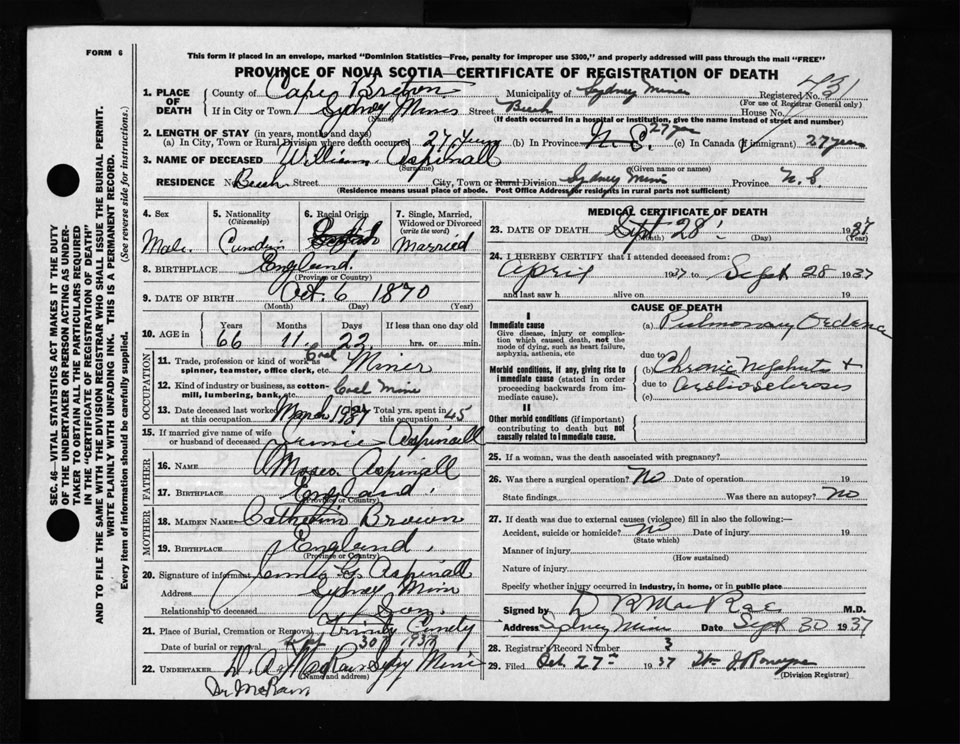 FORM 6
This form if placed in an envelope, marked "Dominion Statistics—Free, penalty for improper use $300," and properly addressed will pass through the mail "FREE"
PROVINCE OF NOVA SCOTIA—CERTIFICATE OF REGISTRATION OF DEATH
1. PLACE OF DEATH County of Cape Breton Municipality of Sydney Mines Registered No.
(For use of Registrar General only)
If in City or Town Sydney Mines Street Beech House No.
(Name) (If death occurred in a hospital or institution, give the name instead of street and number)
2. LENGTH OF STAY (in years, months and days)
(a) In City, Town or Rural Division where death occurred 27 years (b) In Province N. S. 27 yrs (c) In Canada (if immigrant) 27 years
3. NAME OF DECEASED William Aspinall
(Surname) (Given name or names)
RESIDENCE No Beech Street City, Town or Rural Division Sydney Mines Province N. S.
(Residence means usual place of abode. Post Office Address for residents in rural parts not sufficient)
SEC. 46—VITAL STATISTICS ACT MAKES IT THE DUTY
OF THE UNDERTAKER OR PERSON ACTING AS UNDER-
TAKER TO OBTAIN ALL THE PARTICULARS REQUIRED
IN THE "CERTIFICATE OF REGISTRATION OF DEATH"
AND TO FILE THE SAME WITH THE DIVISION REGISTRAR WHO SHALL ISSUE THE BURIAL PERMIT.
WRITE PLAINLY WITH UNFADING INK. THIS IS A PERMANENT RECORD.
Every item of information should be carefully supplied. (See reverse side for instructions.)
4. Sex 5. Nationality (Citizenship) 6. Racial Origin 7. Single, Married, Widowed or Divorced (write the word)
Male English Married
8. BIRTHPLACE England
(Province or Country)
9. DATE OF BIRTH Oct. 6 1870
(Month) (Day) (Year)
10. AGE in Years Months Days If less than one day old
66 11 22 hrs. or min.
OCCUPATION
11. Trade, profession or kind of work as spinner, teamster, office clerk, etc. Coal Miner
12. Kind of industry or business, as cotton-mill, lumbering, bank, etc. Coal Mine
13. Date deceased last worked at this occupation March 1937 Total yrs. spent in this occupation 45
15. If married give name of wife or husband of deceased Aspinall
FATHER
16. NAME Aspinall
17. BIRTHPLACE England
(Province or Country)
MOTHER
18. MAIDEN NAME Brown
19. BIRTHPLACE England
(Province or Country)
20. Signature of informant Aspinall
Address Sydney Mines
Relationship to deceased Son
21. Place of Burial, Cremation or Removal Trinity
Date of burial or removal Sept 30 1937
22. UNDERTAKER Sydney Mines
(Name and address)
MEDICAL CERTIFICATE OF DEATH
23. DATE OF DEATH Sept 28 1937
(Month) (Day) (Year)
24. I HEREBY CERTIFY that I attended deceased from:
April 1937 to Sept 28 1937
and last saw h alive on 19
CAUSE OF DEATH
I
Immediate cause (a) Pulmonary Oedema
Give disease, injury or complication which caused death, not the mode of dying, such as heart failure, asphyxia, asthenia, etc
due to
Morbid conditions, if any, giving rise to immediate cause (stated in order proceeding backwards from immediate cause). (b) Chronic Nephritis +
due to Arteriosclerosis
(c)
II
Other morbid conditions (if important) contributing to death but not causally related to immediate cause.
25. If a woman, was the death associated with pregnancy?
26. Was there a surgical operation? No Date of operation 19
State findings Was there an autopsy? No
27. If death was due to external causes (violence) fill in also the following:—
Accident, suicide or homicide? No Date of injury 19
(State which)
Manner of injury
(How sustained)
Nature of injury
Specify whether injury occurred in industry, in home, or in public place
Signed by D R MacRae M.D.
Address Sydney Mines Date Sept 30 1937
28. Registrar's Record Number 3
29. Filed Oct. 27th 1937
(Division Registrar)